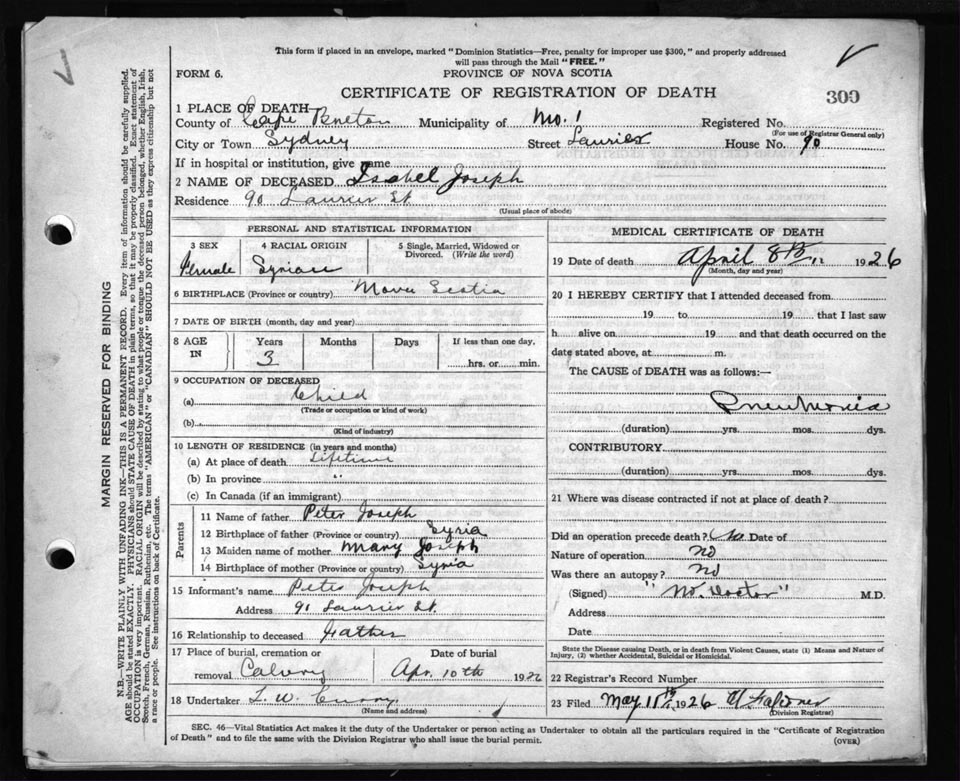 This form if placed in an envelope, marked "Dominion Statistics—Free, penalty for improper use $300," and properly addressed
will pass through the Mail "FREE."
FORM 6.
PROVINCE OF NOVA SCOTIA
CERTIFICATE OF REGISTRATION OF DEATH
300
1 PLACE OF DEATH
County of Cape Breton Municipality of No. 1 Registered No.
(For use of Registrar General only)
City or Town Sydney Street Laurier House No. 90
If in hospital or institution, give name
2 NAME OF DECEASED Isabel Joseph
Residence 90 Laurier St
(Usual place of abode)
PERSONAL AND STATISTICAL INFORMATION
3 SEX 4 RACIAL ORIGIN 5 Single, Married, Widowed or
Divorced. (Write the word)
Female Syrian
6 BIRTHPLACE (Province or country) Nova Scotia
7 DATE OF BIRTH (month, day and year)
8 AGE IN Years Months Days If less than one day,
3 hrs. or min.
9 OCCUPATION OF DECEASED
(a) Child
(Trade or occupation or kind of work)
(b)
(Kind of industry)
10 LENGTH OF RESIDENCE (in years and months)
(a) At place of death Lifetime
(b) In province "
(c) In Canada (if an immigrant)
Parents
11 Name of father Peter Joseph
12 Birthplace of father (Province or country) Syria
13 Maiden name of mother Mary Joseph
14 Birthplace of mother (Province or country) Syria
15 Informant's name Peter Joseph
Address 91 Laurier St.
16 Relationship to deceased Father
17 Place of burial, cremation or Date of burial
removal Calvry Apr. 10th 1926
18 Undertaker L. W. Curry
(Name and address)
MEDICAL CERTIFICATE OF DEATH
19 Date of death April 8th 1926
(Month, day and year)
20 I HEREBY CERTIFY that I attended deceased from
19 to 19 that I last saw
h alive on 19 and that death occurred on the
date stated above, at m.
The CAUSE of DEATH was as follows:—
Pneumonia
(duration) yrs. mos. dys.
CONTRIBUTORY
(duration) yrs. mos. dys.
21 Where was disease contracted if not at place of death?
Did an operation precede death? No Date of
Nature of operation No
Was there an autopsy? No
(Signed) "No Doctor" M.D.
Address
Date
State the Disease causing Death, or in death from Violent Causes, state (1) Means and Nature of
Injury, (2) whether Accidental, Suicidal or Homicidal.
22 Registrar's Record Number
23 Filed May 11th 1926
(Division Registrar)
SEC. 46—Vital Statistics Act makes it the duty of the Undertaker or person acting as Undertaker to obtain all the particulars required in the "Certificate of Registration
of Death" and to file the same with the Division Registrar who shall issue the burial permit.
(OVER)
MARGIN RESERVED FOR BINDING
N.B.—WRITE PLAINLY WITH UNFADING INK—THIS IS A PERMANENT RECORD. Every item of information should be carefully supplied.
AGE should be stated EXACTLY. PHYSICIANS should STATE CAUSE OF DEATH in plain terms, so that it may be properly classified. Exact statement of
OCCUPATION is very important. RACIAL ORIGIN will be described by stating to what people or tongue the deceased person belonged, whether English, Irish,
Scotch, French, German, Russian, Ruthenian, etc. The terms "AMERICAN" or "CANADIAN" SHOULD NOT BE USED as they express citizenship but not
a race or people. See instructions on back of Certificate.